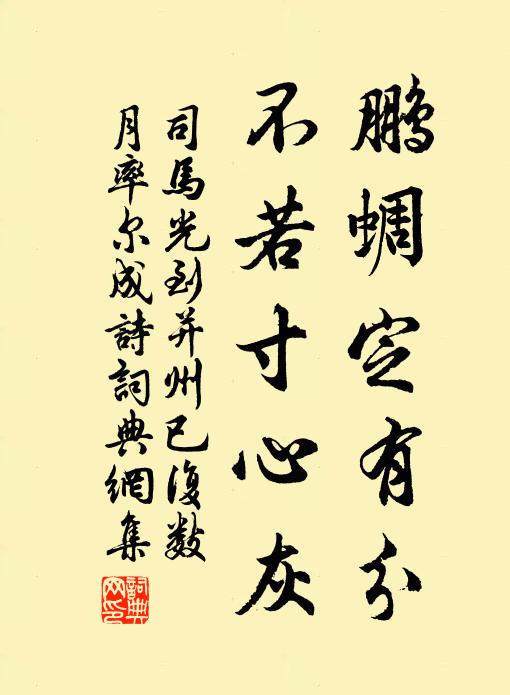 鹏蜩定有分
不若寸心灰
司馬光到并州已復数
月率尔成詩詞典網集
詞典網印